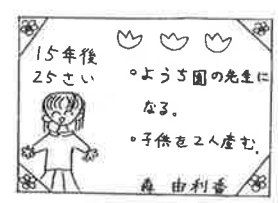 15年後
25さい
◦ようち園の先生に
なる。
◦子供を2人産む.
森 由利香